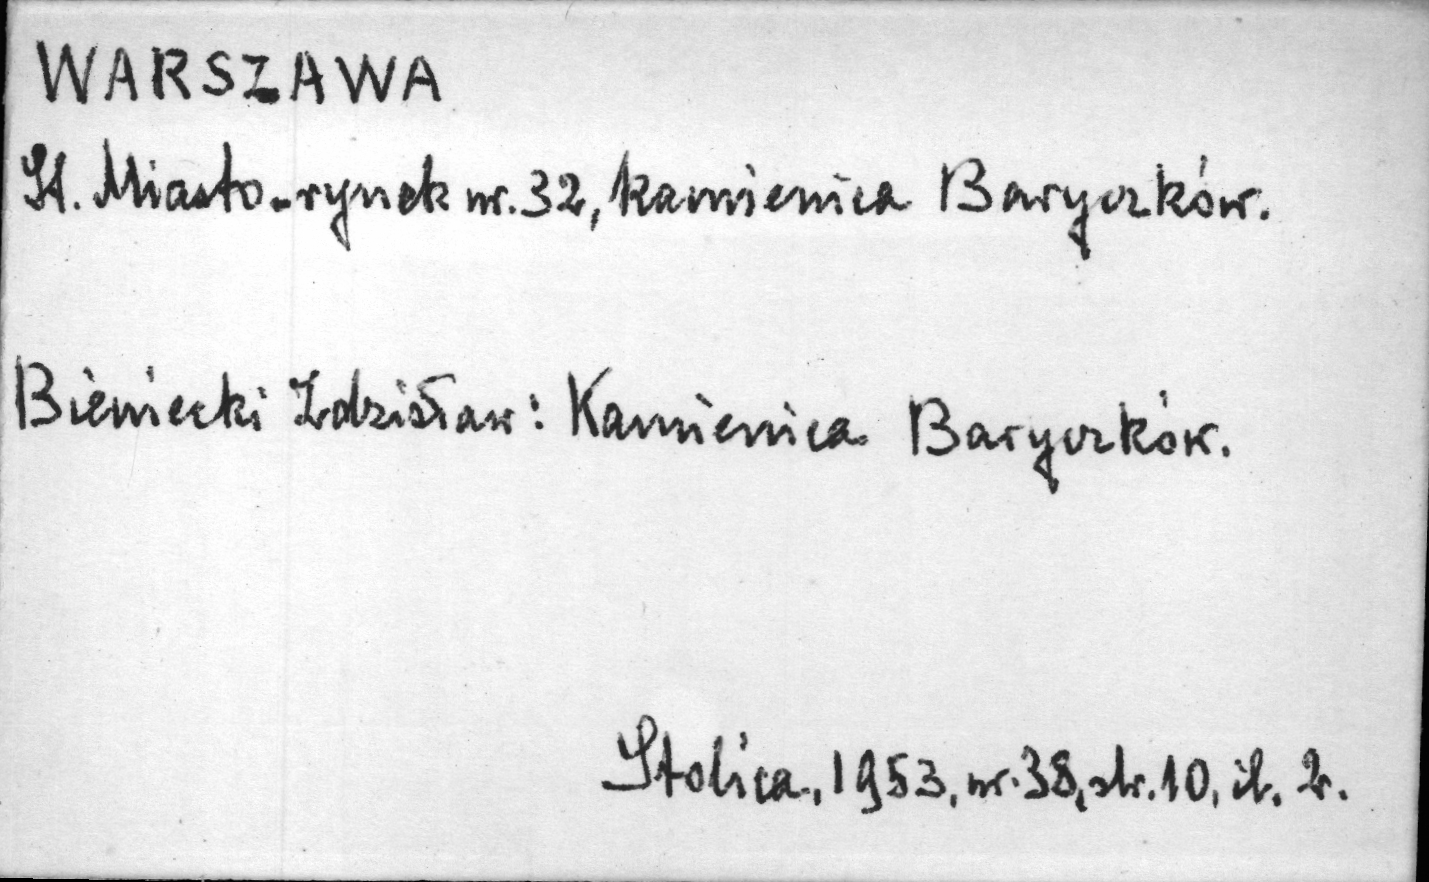 WARSZAWA
St. Miasto-rynek nr. 32, kamienica Baryczków.
Bieniecki Zdzisław: Kamienica Baryczków.
Stolica, 1953, nr. 38, str. 10, il. 2.